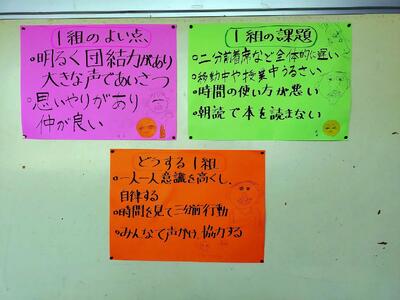 1組のよい点、
・明るく団結力があり
大きな声であいさつ
・思いやりがあり
仲が良い
1組の課題
・二分前着席など全体的に遅い
・移動中や授業中うるさい
・時間の使い方が悪い
・朝読で本を読まない
どうする1組
・一人一人意識を高くし、
自律する
・時間を見て三分前行動
・みんなで声かけ、協力する